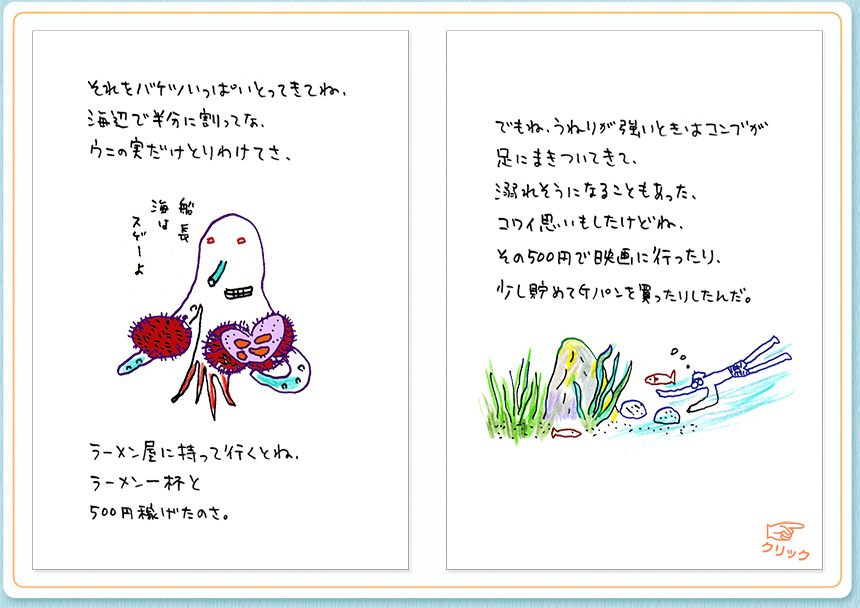 それをバケツいっぱいとってきてね、
海辺で半分に割ってな、
ウニの実だけとりわけてさ、
船長
海は
スゲーよ
ラーメン屋に持って行くとね、
ラーメン一杯と
500円稼げたのさ。
でもね、うねりが強いときはコンブが
足にまきついてきて、
溺れそうになることもあった、
コワイ思いもしたけどね、
その500円で映画に行ったり、
少し貯めてGパンを買ったりしたんだ。
クリック